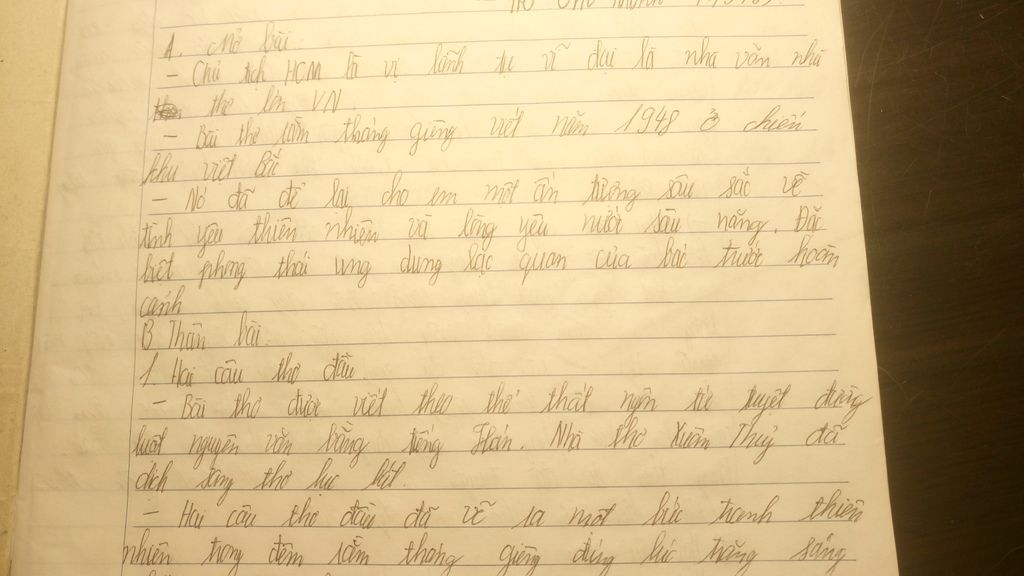 A. Mở bài:
- Chủ tịch HCM là vị lãnh tụ vĩ đại là nhà văn nhà
thơ lớn VN
- Bài thơ rằm tháng giêng viết năm 1948 ở chiến
khu việt bắc
- Nó đã để lại cho em một ấn tượng sâu sắc về
tình yêu thiên nhiên và lòng yêu nước sâu nặng. Đặc
biệt phong thái ung dung lạc quan của bác trước hoàn
cảnh
B Thân bài.
1. Hai câu thơ đầu.
- Bài thơ được viết theo thể thất ngôn tứ tuyệt đường
luật nguyên văn bằng tiếng Hán. Nhà thơ Xuân Thuỷ đã
dịch sang thơ lục bát.
- Hai câu thơ đầu đã vẽ ra một bức tranh thiên
nhiên trong đêm rằm tháng giêng đúng lúc trăng sáng